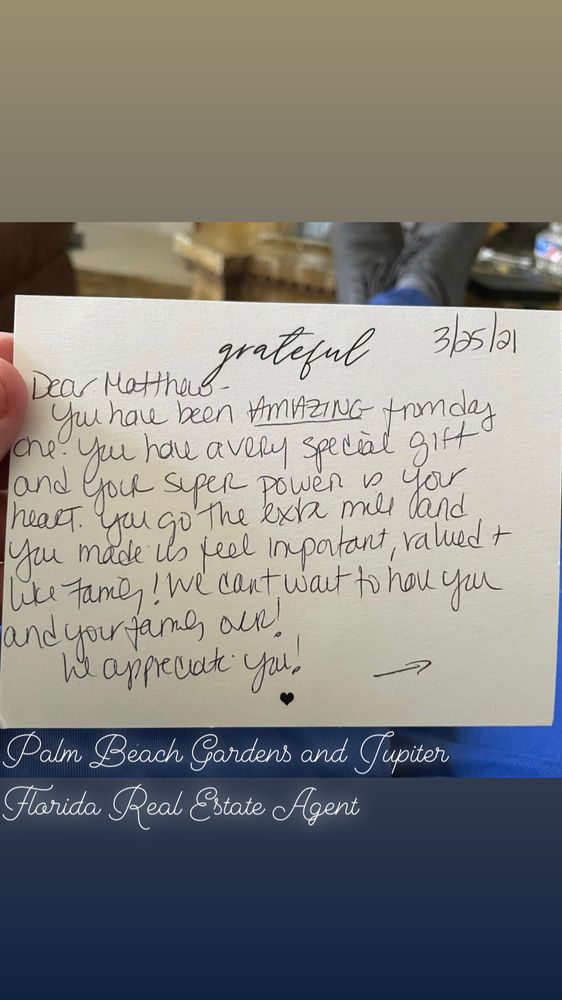 grateful
3/25/21
Dear Matthew-
You have been AMAZING from day
one. You have a very special gift
and your super power is your
heart. You go the extra mile and
you made us feel important, valued +
like family! We can't wait to have you
and your family over!
We appreciate you!
Palm Beach Gardens and Jupiter
Florida Real Estate Agent